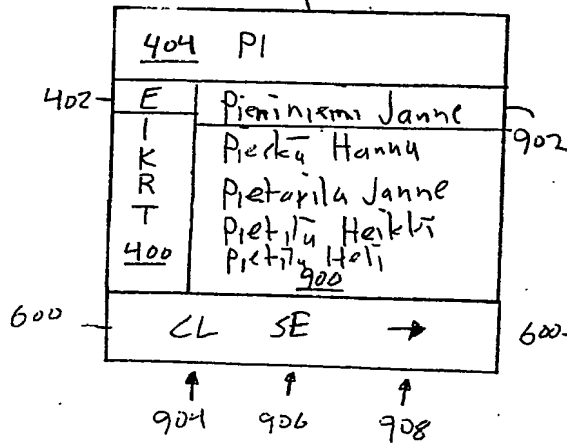 404 PI
402 E Pieniniemi Janne 902
I
K Hannu
R Pietarila Janne
T Pietilä Heikki
400 Pietilä Heli
900
600 CL SE → 600
904 906 908